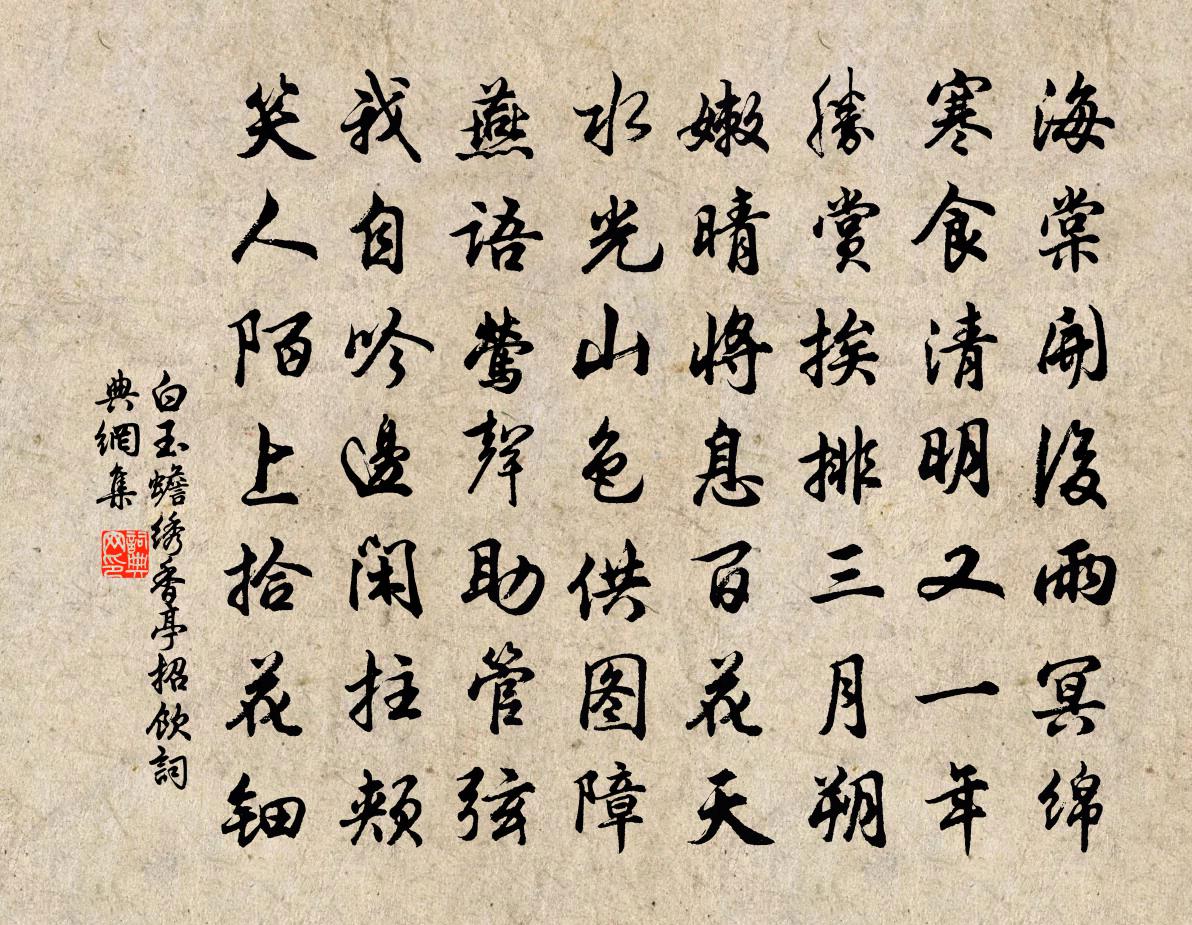 海棠開後雨冥綿
寒食清明又一年
勝賞挨排三月朔
嫩晴將息百花天
水光山色供图障
燕語鶯聲助管弦
我自吟邊闲拄頰
笑人陌上拾花钿
白玉蟾绣香亭招飲詞
典網集
詞典
网印